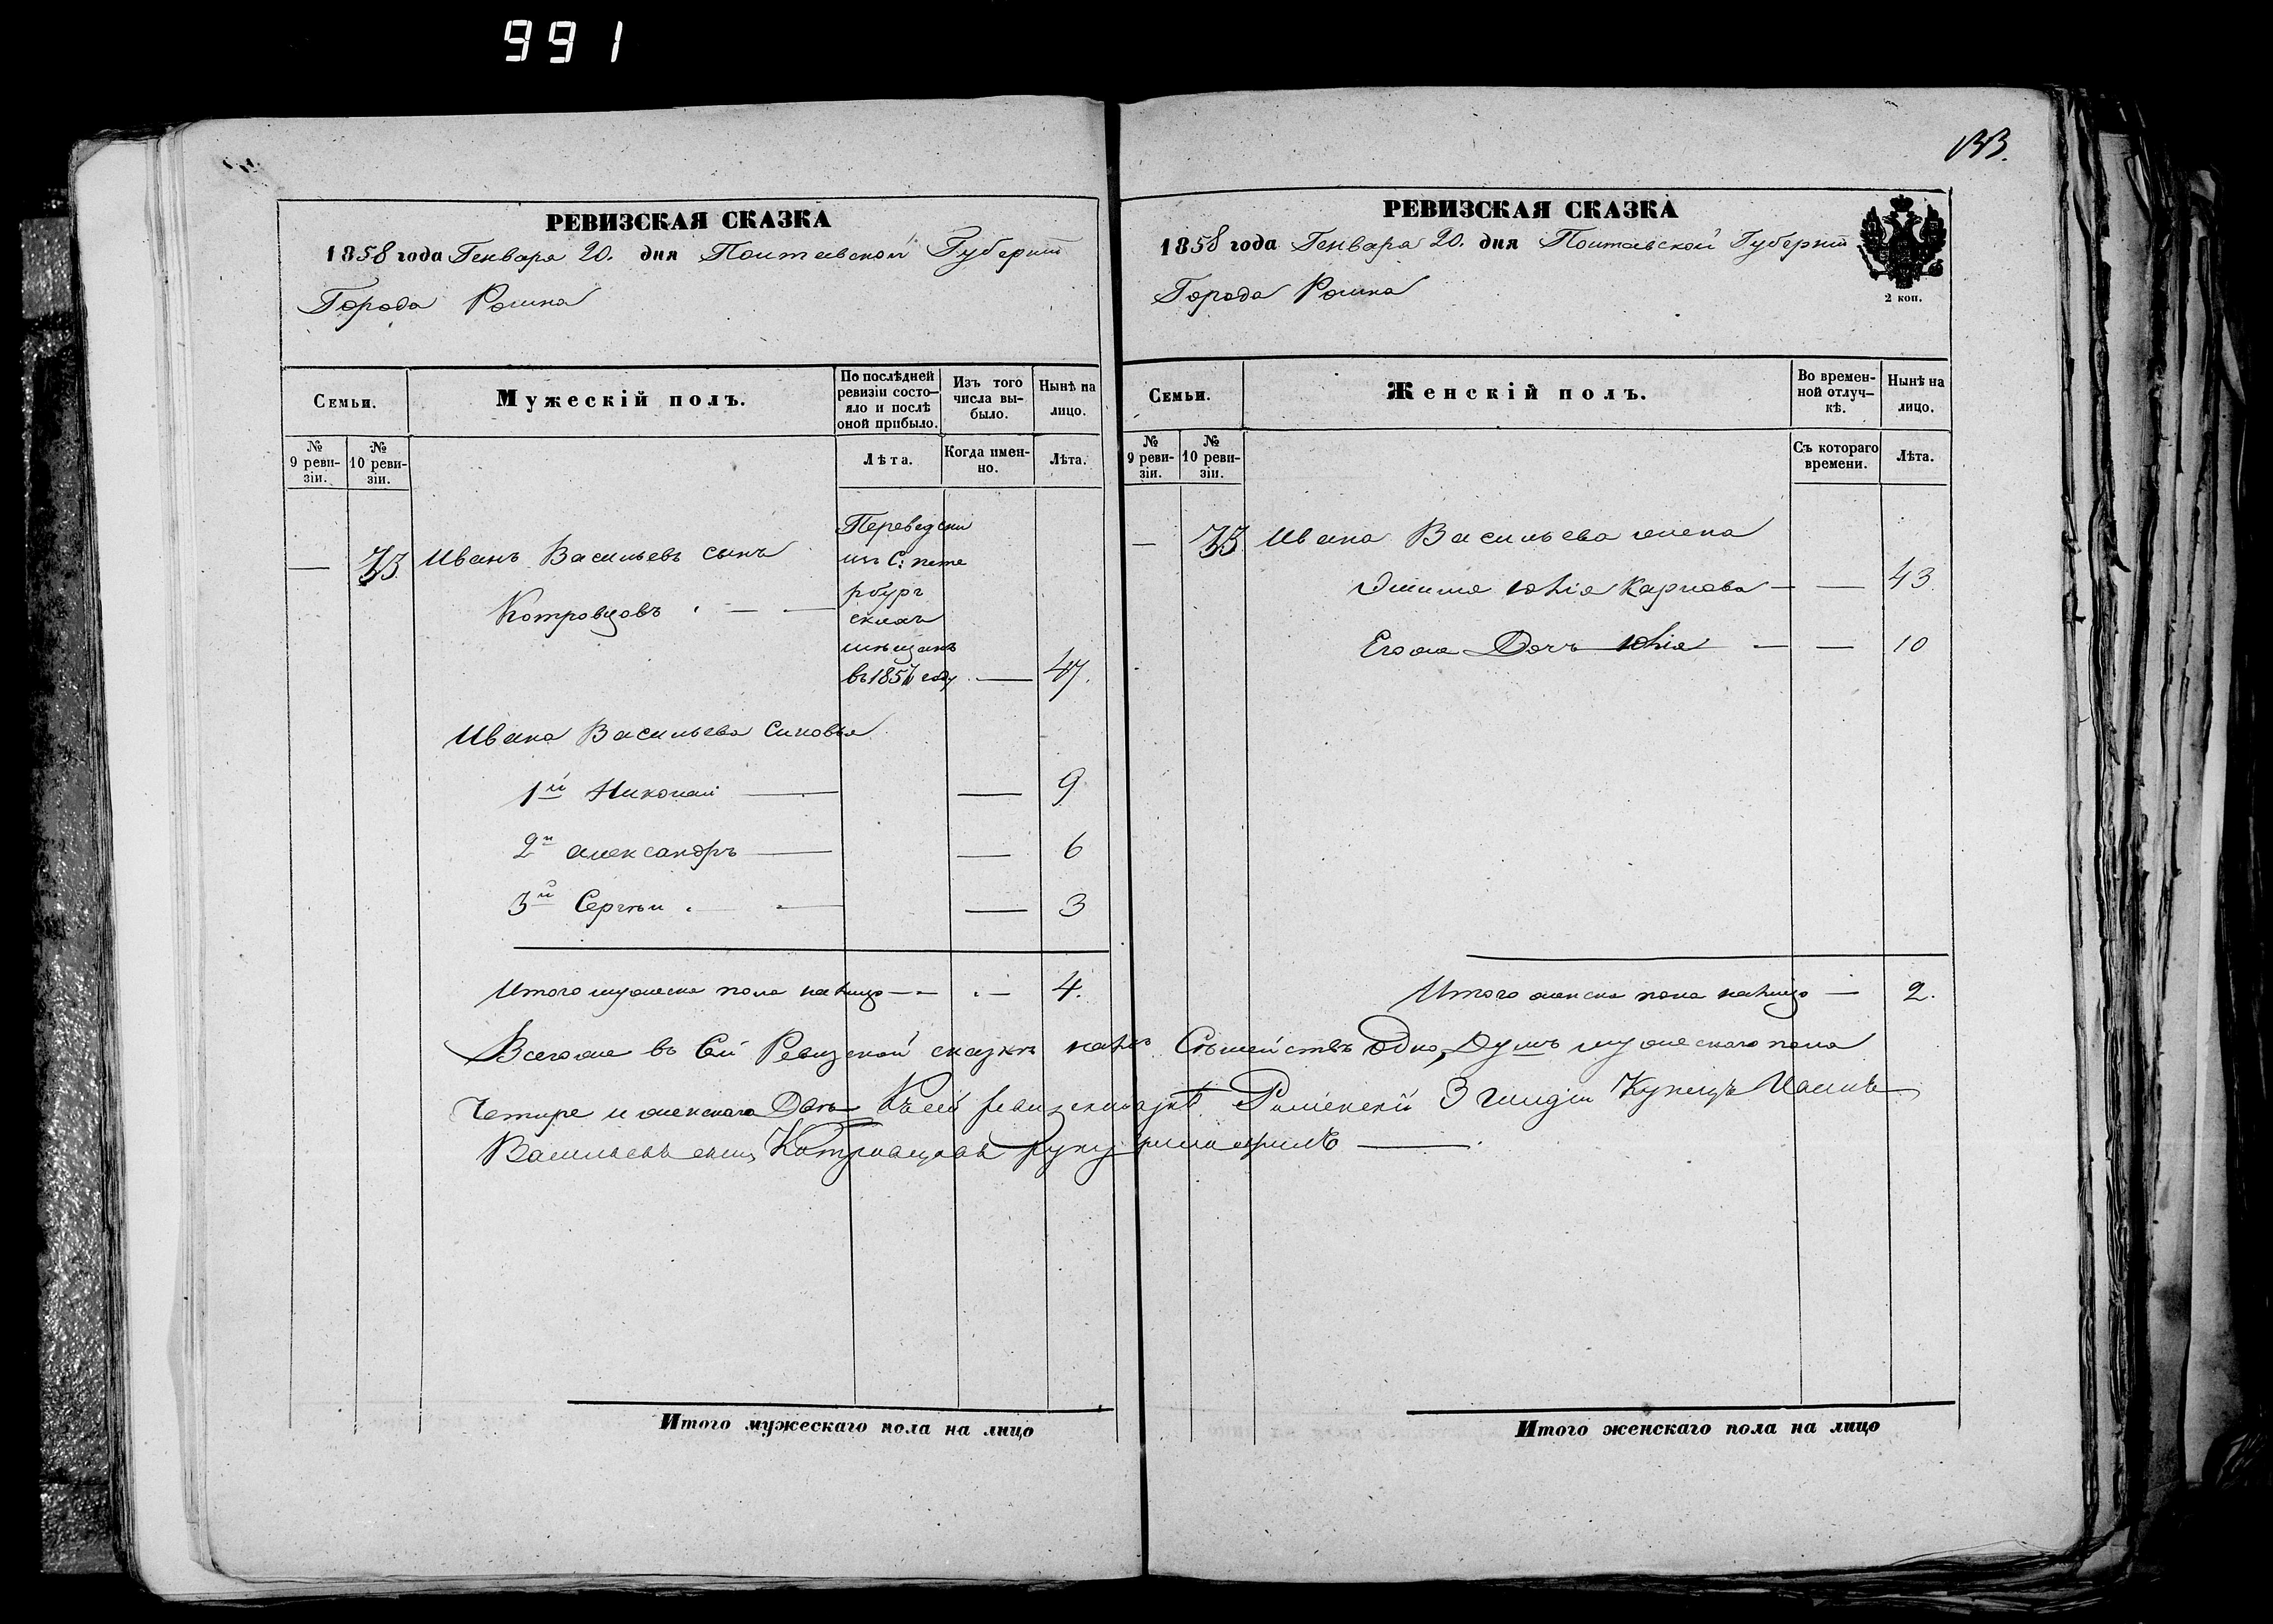 991
133.
РЕВИЗСКАЯ СКАЗКА
1858 года Генваря 20. дня Полтавской Губерніи
Города Ромна
Семьи.
Мужескій полъ.
По послѣдней ревизіи состо-яло и послѣ оной прибыло.
Изъ того числа вы-было.
Нынѣ на лицо.
№ 9 реви-зіи.
№ 10 реви-зіи.
Лѣта.
Когда имен-но.
Лѣта.
— 33. Иванъ Васильевъ сынъ
Котровцовъ
Переведени
изъ С: пете
рбург
скихъ
мѣщанъ
въ 1857 году — 47.
Ивана Васильева Синовья
1й Николай — — 9
2й Александръ — — 6
3й Сергѣи — — 3
Итого мужеска пола налицо — 4.
РЕВИЗСКАЯ СКАЗКА
1858 года Генваря 20. дня Полтавской Губерніи
Города Ромна
2 коп.
Семьи.
Женскій полъ.
Во времен-ной отлуч-кѣ.
Нынѣ на лицо.
№ 9 реви-зіи.
№ 10 реви-зіи.
Съ котораго времени.
Лѣта.
— 33. Ивана Васильева жена
Юлія Карлова — — 43
Егоже Дочъ Юлія — — 10
Итого женска пола налицо — 2.
Всегоже въ Сей Ревизской сказкѣ налицо Сѣмействъ Одно, Душъ мужескаго пола
Четире и женскаго Двѣ Къ сей ревизской сказкѣ Роменскій 3 гилдіи Купецъ Иванъ
Васильевъ сынъ Котровцовъ руку приложилъ
Итого мужескаго пола на лицо
Итого женскаго пола на лицо